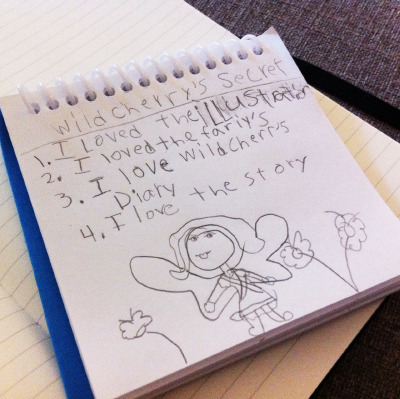 wildcherry's Secret
1. I Loved the illustration
2. I loved the fariy's
3. I love wildcherrys
Diary
4. I love the story